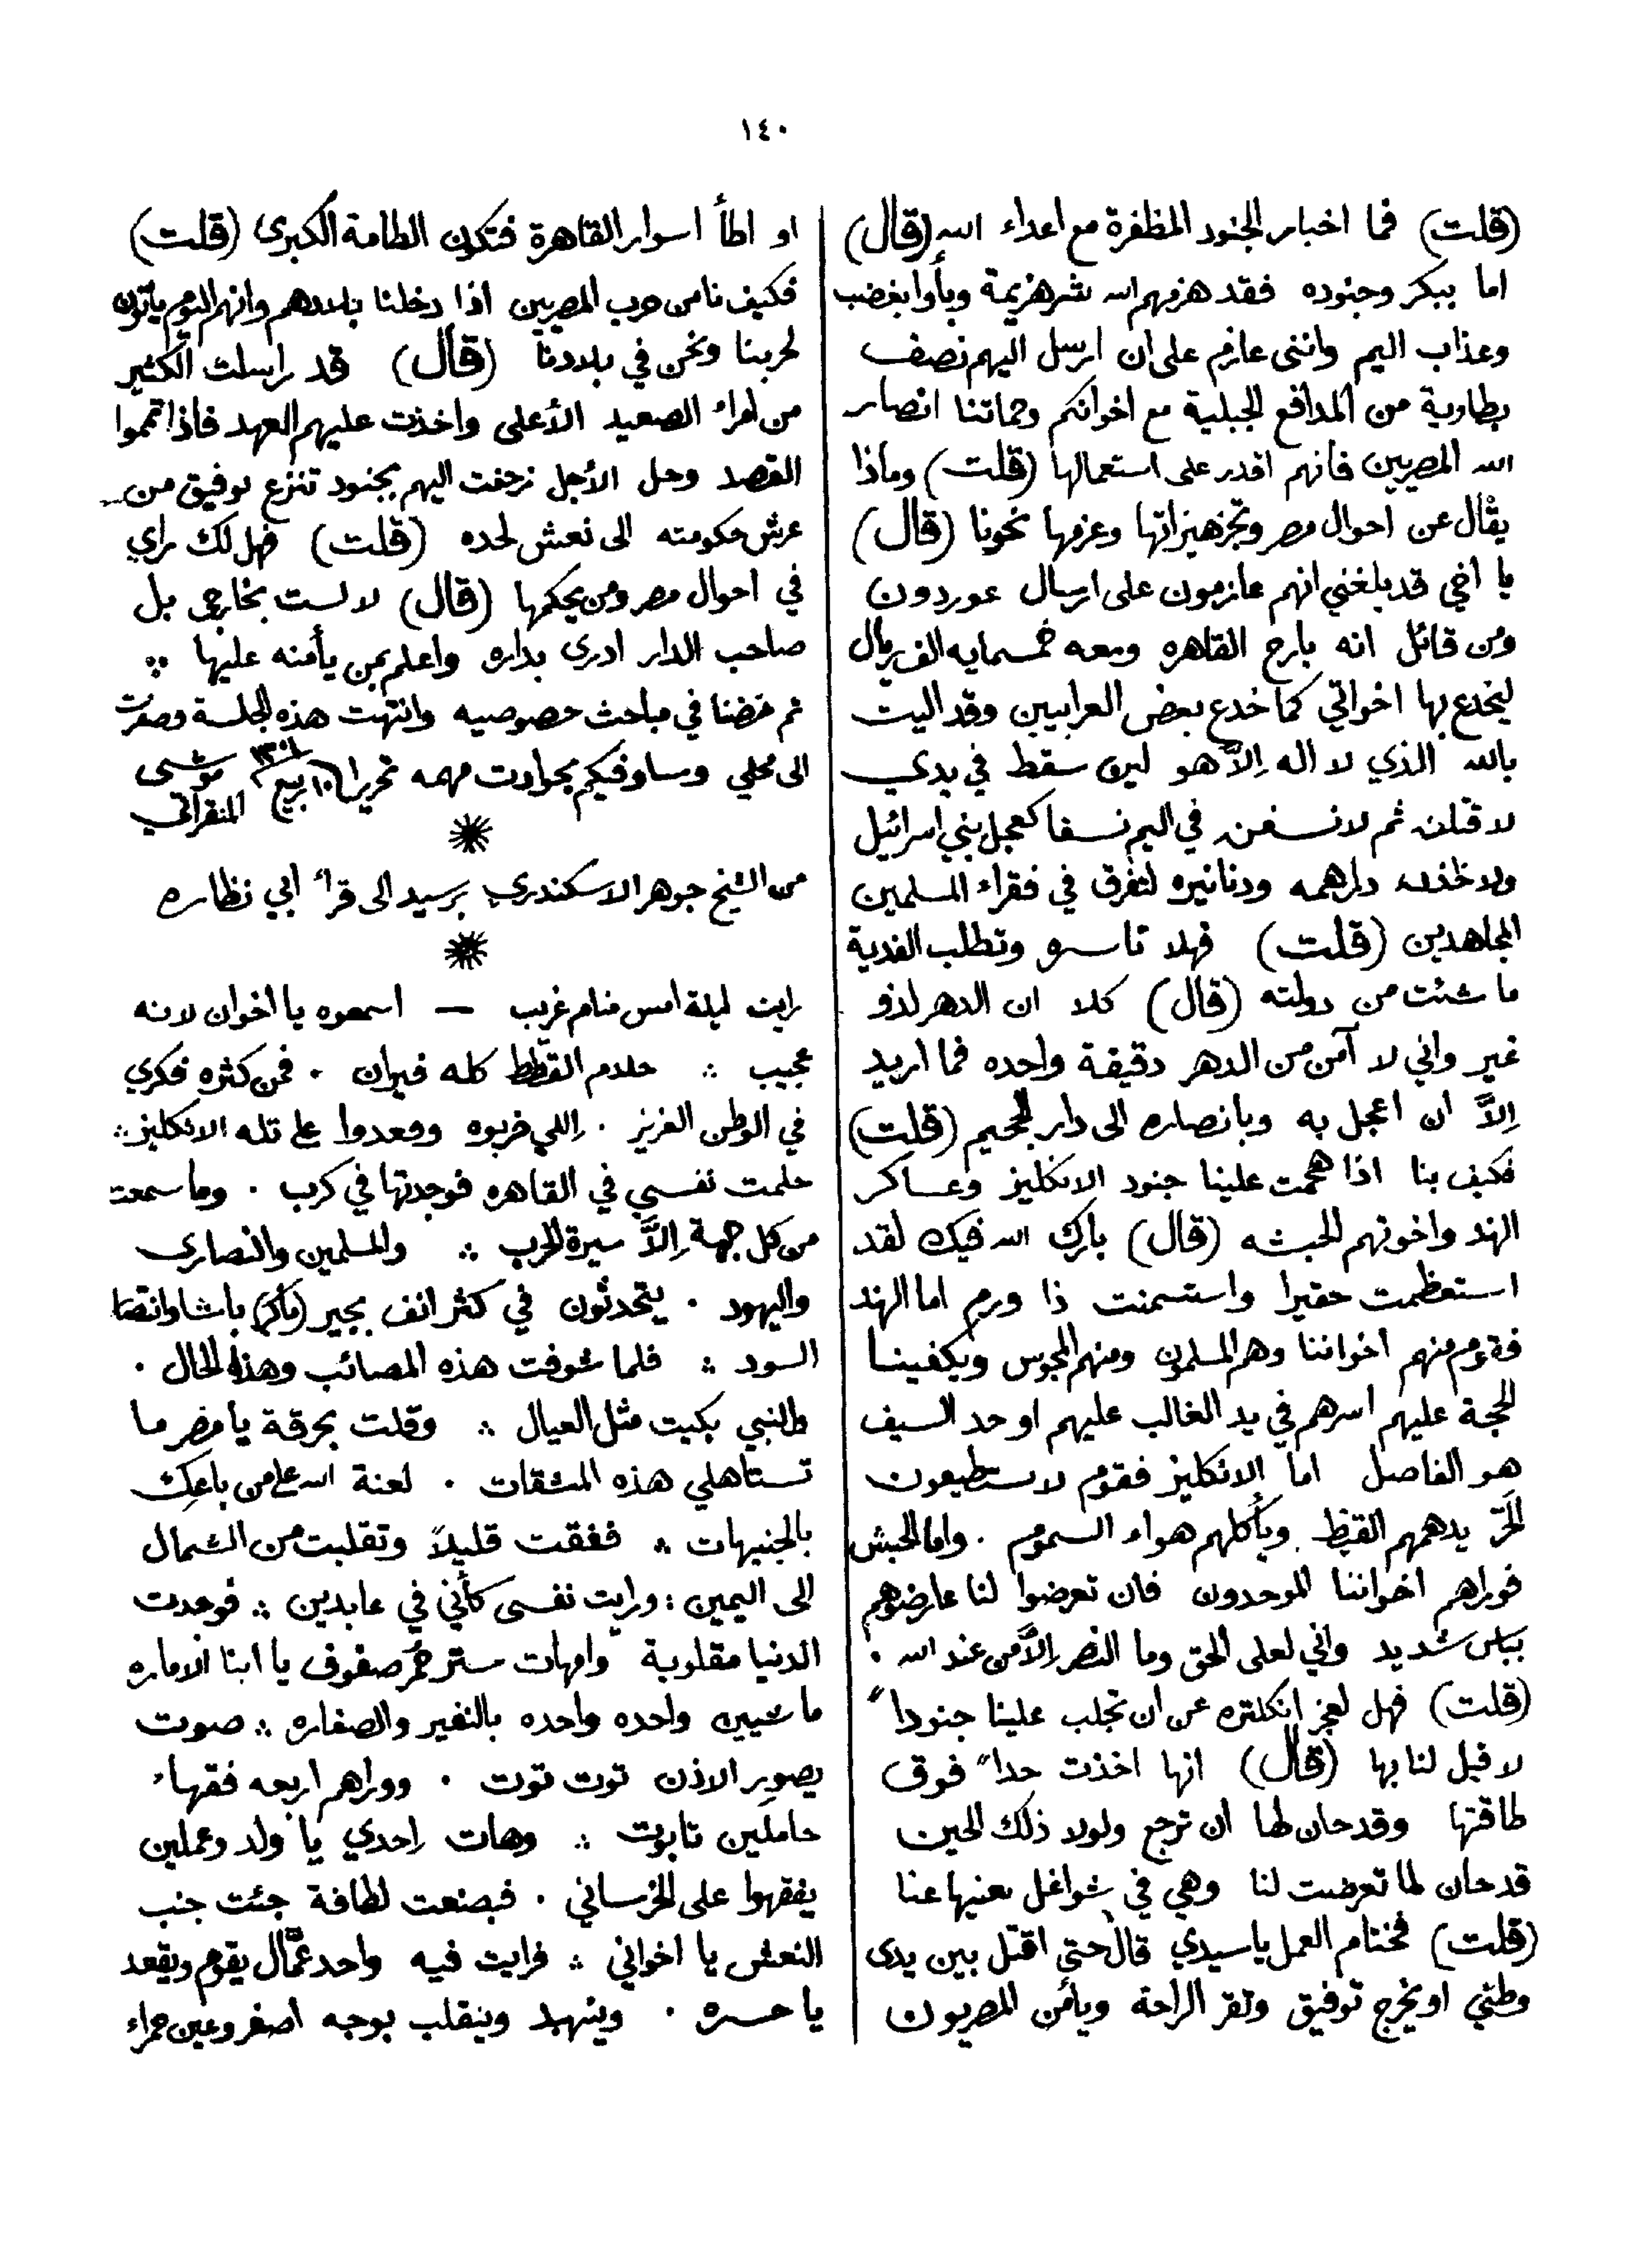 ١٤٠
(قلت) فما اخبار الجنود المظفرة مع اعداء الله (قال)
اما ببكر وجنوده فقد هزمهم الله شر هزيمة وبأوا بغضب
وعذاب اليم وانني عازم على ان ارسل اليهم نصف
بطارية من المدافع الجبلية مع اخوانكم وحماتنا انصار
الله المصريين فانهم اقدر على استعمالها (قلت) وماذا
يقال عن احوال مصر وتجهيزاتها وعزمها نحونا (قال)
يا اخي قد بلغني انهم عازمون على ارسال عوردون
ومن قائل انه بارح القاهره ومعه خمسمايه الف ريال
ليخدع بها اخواتي كما خدع بعض العرابيين وقد اليت
بالله الذي لا اله إلاَّ هو لين سقط في يدي
لاقتلنه ثم لانسفنه في اليم نسفا كعجل بني اسرائيل
ولاخذنه دراهمه ودنانيره لتفرق في فقراء المسلمين
المجاهدين (قلت) فهلا تاسره وتطلب الفدية
ما شئت من دولته (قال) كلا ان الدهر لذو
غير واني لا آمن من الدهر دقيقة واحده فما اريد
إلاَّ ان اعجل به وبانصاره الى دار الجحيم (قلت)
فكيف بنا اذا هجمت علينا جنود الانكليز وعساكر
الهند واخوتهم الحبشه (قال) بارك الله فيك لقد
استعظمت حقيرا واستسمنت ذا ورم اما الهند
فقوم منهم اخواننا وهم المسلمون ومنهم المجوس ويكفينا
الحجة عليهم اسرهم في يد الغالب عليهم او حد السيف
هو الفاصل اما الانكليز فقوم لا يستطيعون
الحَرّ يدهمهم القيظ ويأكلهم هواء السموم . واما الحبش
فوراهم اخواننا الموحدون فان تعرضوا لنا عارضوهم
بباس شديد واني لعلى الحق وما النصر إلاَّ من عند الله .
(قلت) فهل لعجز انكلتره عن ان تجلب علينا جنوداً
لا قبل لنا بها (قال) انها اخذت حداً فوق
طاقتها وقد حان لها ان ترجع ولولا ذلك الحين
قد حان لما تعرضت لنا وهي في شواغل تعنيها عنا
(قلت) فختام العمل يا سيدي قال حتى اقتل بين يدى
وطني او يخرج توفيق وتقر الراحة ويأمن المصريون
او اطأ اسوار القاهرة فتكون الطامة الكبرى (قلت)
فكيف نامن حرب المصريين اذا دخلنا بلادهم وانهم اليوم يأتون
لحربنا ونحن في بلادنا (قال) قد راسلت الكثير
من امراء الصعيد الأعلى واخذت عليهم العهد فاذا تمموا
القصد وحل الأجل زحفت اليهم بجنود تنزع توفيق من
عرش حكومته الى نعش لحده (قلت) فهل لك راي
في احوال مصر ومن يحكمها (قال) لا لست بخارجي بل
صاحب الدار ادرى بداره واعلم بمن يأمنه عليها
ثم خضنا في مباحث خصوصيه وانتهت هذه الجلسة وصرفت
الى محلي وساوفيكم بحوادث مهمه تحريرا ١٠ ربيع ١٣٠١ موسى المنقراتي
من الشيخ جوهر الاسكندري برسيد الى قراء ابي نظاره
رايت ليلة امس منام غريب — اسمعوه يا اخوان لانه
عجيب ∴ حلام القطط كله فيران . فمن كثره فكري
في الوطن العزيز . إللي خربوه وقعدوا على تله الانكليز ∴
حلمت نفسي في القاهره فوجدتها في كرب . وما سمعت
من كل جهة إلاَّ سيرة الحرب ∴ والمسلمين والنصارى
واليهود . يتحدثون في كثر انف بجير (باكر) باشا وانقصا
السود ∴ فلما شوفت هذه المصائب وهذه الحال .
والنبي بكيت مثل العيال ∴ وقلت بحرقة يا مصر ما
تستاهلي هذه المشقات . لعنة الله على من باعكِ
بالجنيهات ∴ ففقت قليلاً وتقلبت من الشمال
الى اليمين : ورايت نفسى كأني في عابدين ∴ فوجدت
الدنيا مقلوبة وامهات ستر حُمر صفوف يا ابنا الاماره
ماشيين واحده واحده بالنفير والصفاره ∴ صوت
يصوِر الاذن توت توت . ووراهم اربعه فقهاء
حاملين تابوت ∴ وهات إحدي يا ولد وعملين
يفقهوا على الخرساني . فبصنعت لطافة جئت جنب
النعش يا اخواني ∴ فرايت فيه واحد عمَّال يقوم ويقعد
يا حسره . ويتنهد وينقلب بوجه اصفر وعين حمراء